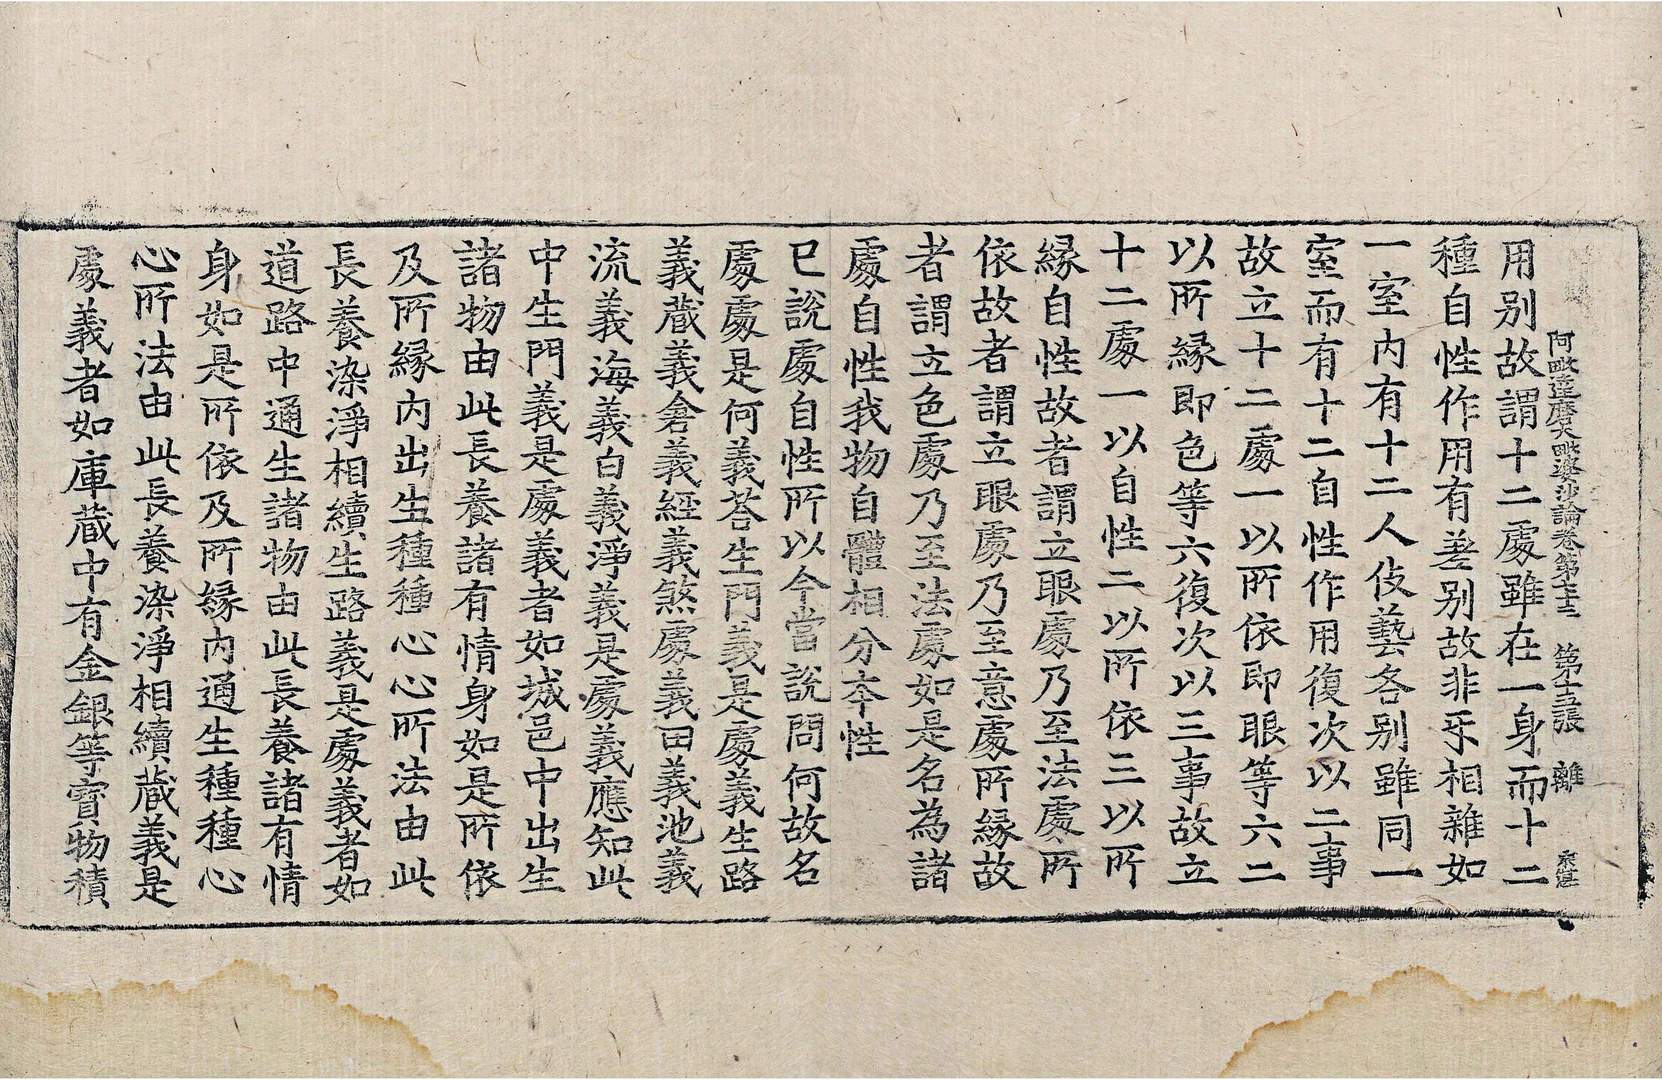 阿毗達磨大毗婆沙論卷第七十三 第十五張 雜
用別故謂十二處雖在一身而十二
種自性作用有差別故非乐相雜如
一室內有十二人伎藝各別雖同一
室而有十二自性作用復次以二事
故立十二處一以所依即眼等六二
以所緣即色等六復次以三事故立
十二處一以自性二以所依三以所
緣自性故者謂立眼處乃至法處所
依故者謂立眼處乃至意處所緣故
者謂立色處乃至法處如是名為諸
處自性我物自體相分夲性
已說處自性所以今當說問何故名
處處是何義荅生門義是處義生路
義藏義倉義經義煞處義田義池義
流義海義白義淨義是處義應知此
中生門義是處義者如城邑中出生
諸物由此長養諸有情身如是所依
及所緣內出生種種心心所法由此
長養染淨相續生路義是處義者如
道路中通生諸物由此長養諸有情
身如是所依及所緣內通生種種心
心所法由此長養染淨相續藏義是
處義者如庫藏中有金銀等寶物積